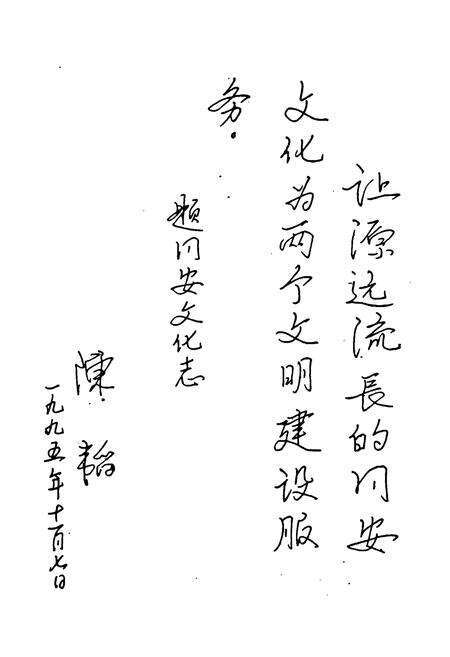 让源远流長的同安
文化为两个文明建设服
务.
题同安文化志
陳韬
一九九五年十一月七日